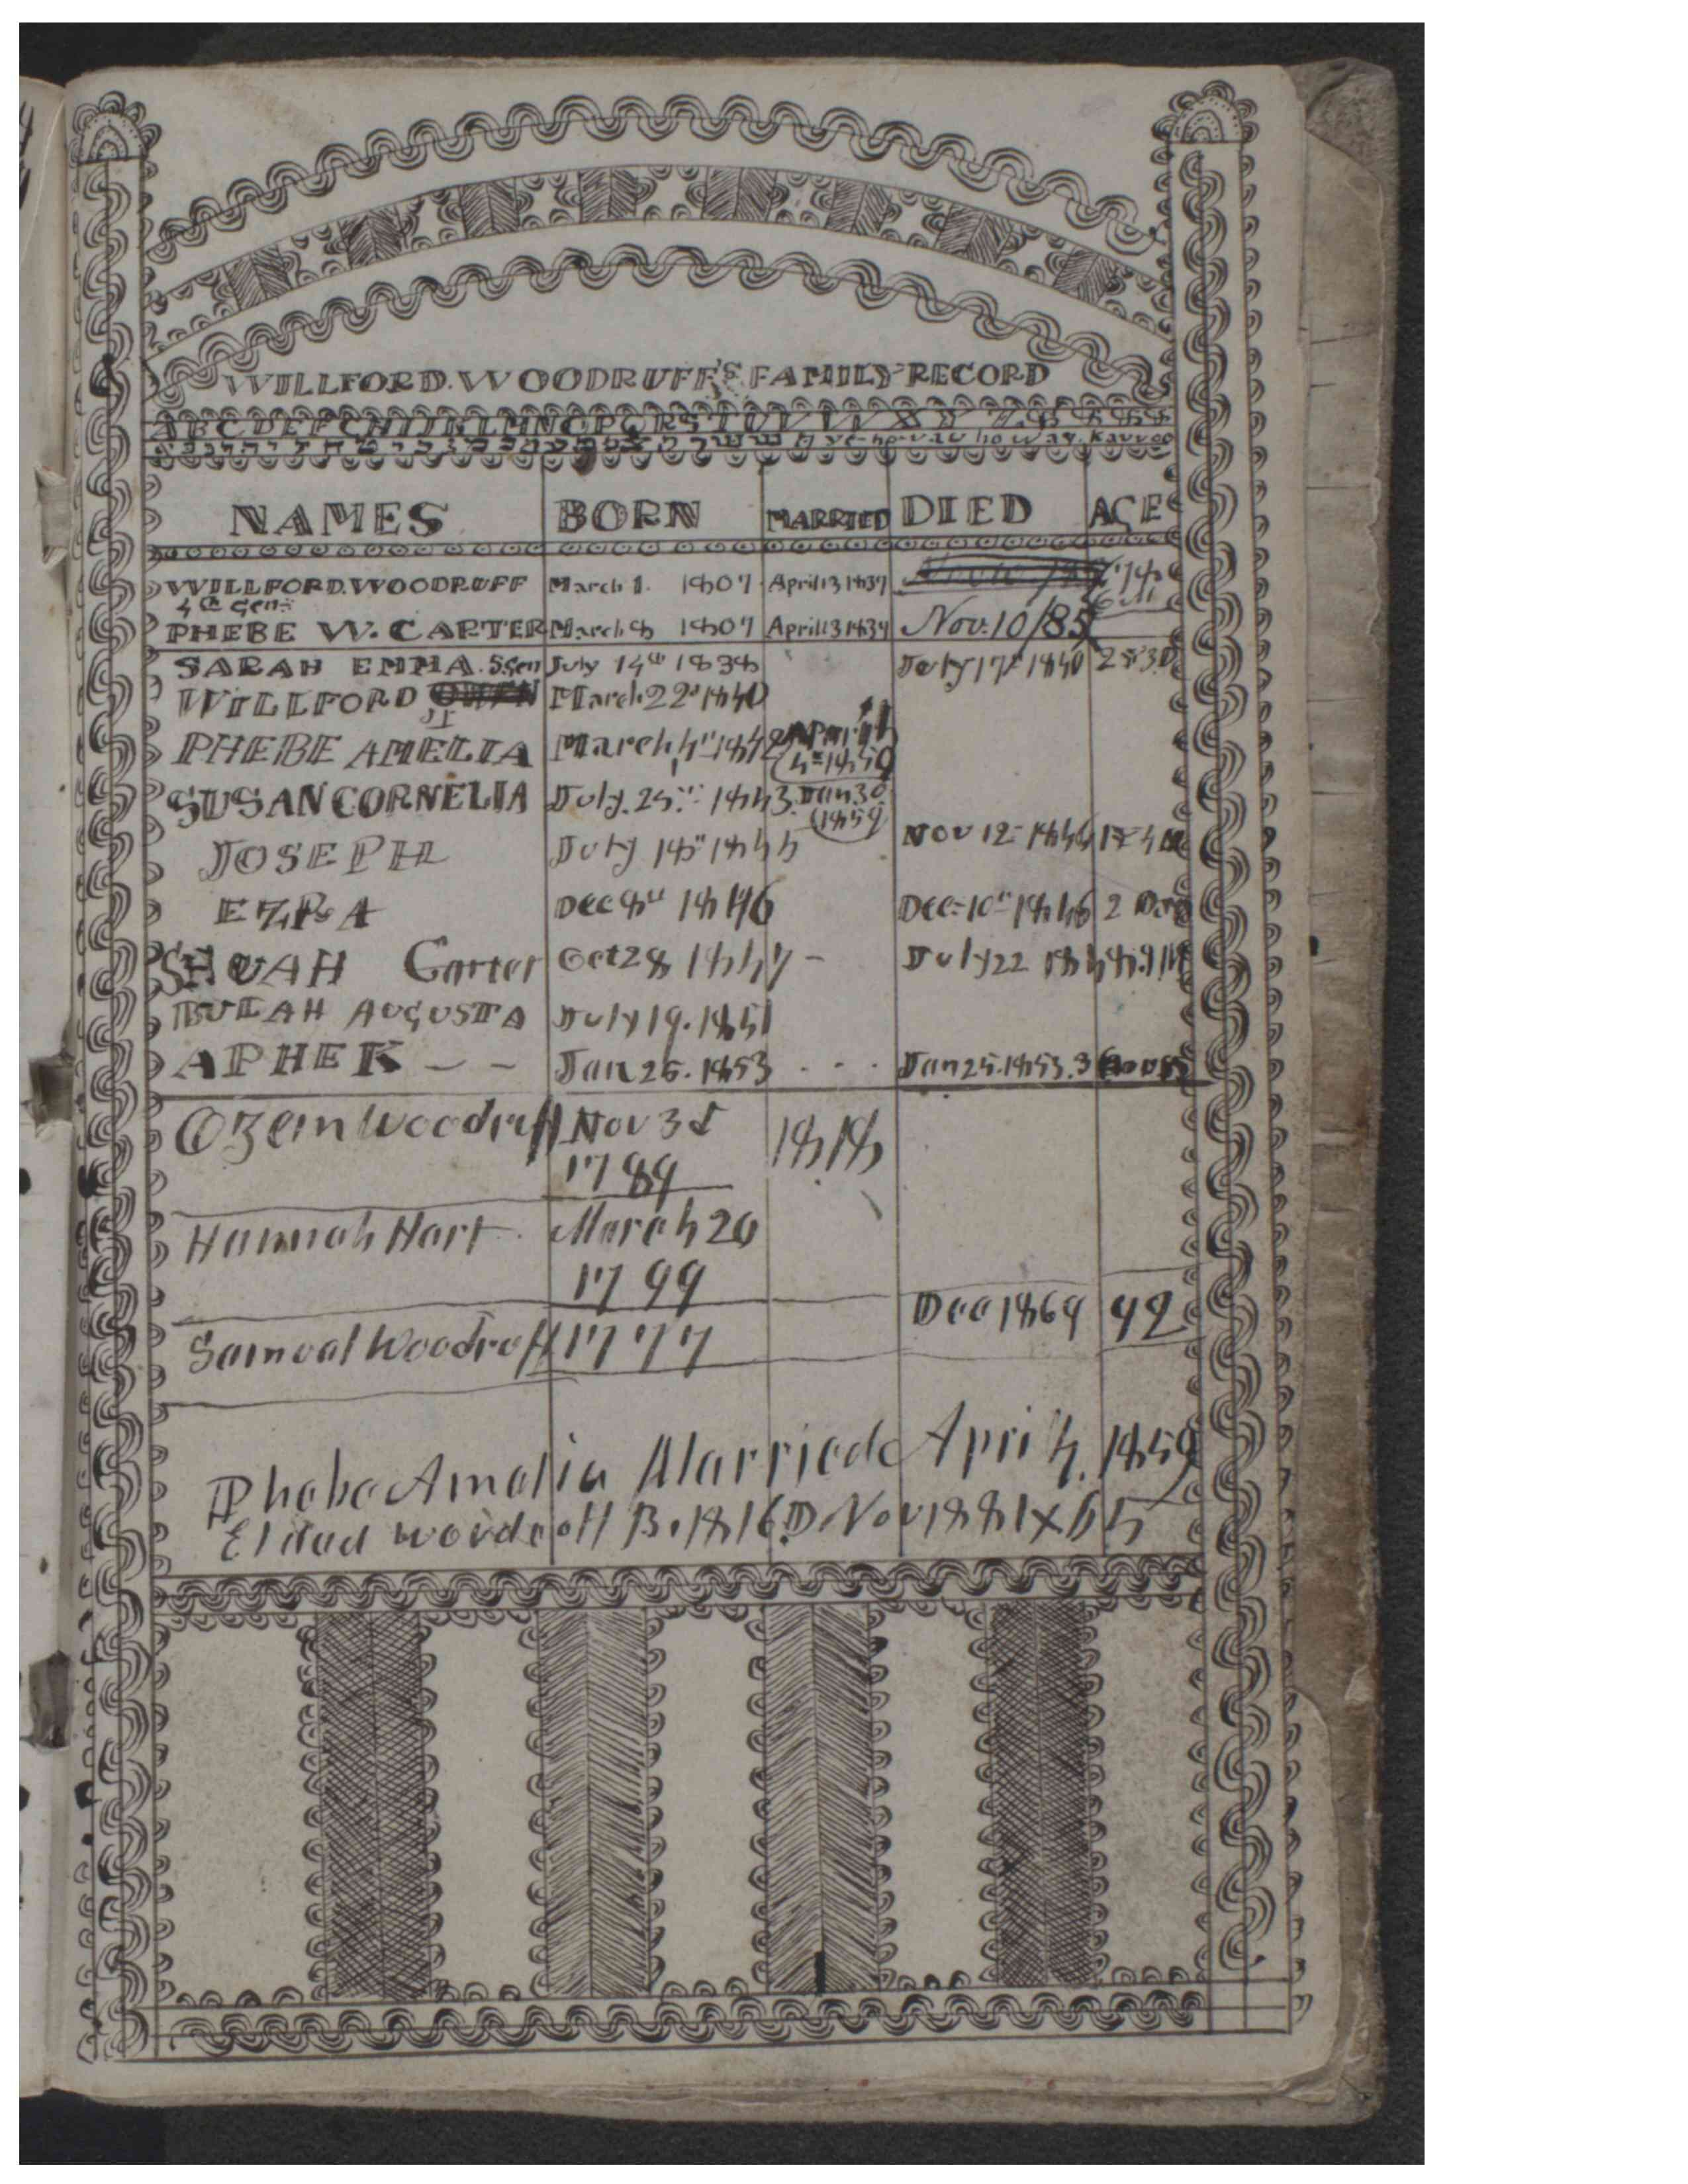 WILLFORD. WOODRUFF'S FAMILY RECORD
NAMES BORN MARRIED DIED AGE
WILLFORD. WOODRUFF March 1. 1807 April 13 1837
PHEBE W. CARTER March 8 1807 April 13 1837 Nov. 10/85
SARAH EMMA. 5 gen July 14th 1838 July 17th 1840
WILLFORD Jr March 22d 1840
PHEBE AMELIA March 4th 1842 April 4th 1859
SUSAN CORNELIA July. 25th 1843. Jan 30 1859
JOSEPH July 18th 1845 Nov 12
EZRA Dec 8th 1846 Dec 10th 1846 2 Days
SHUAH Carter Oct 28 1847 - July 22 1848. 9 M
BULAH AUGUSTA July 19. 1851
APHEK - - Jan 25. 1853 . . . Jan 25. 1853. 3 hours
Ozem Woodruff Nov 3d 1818
1789
Hannah Hart March 20
1799
Samuel Woodruff 1777 Dec 1869 92
Phebe Amelia Married April 4. 1859
Eldad Woodruff B. 1816. D. Nov 1881 X 65